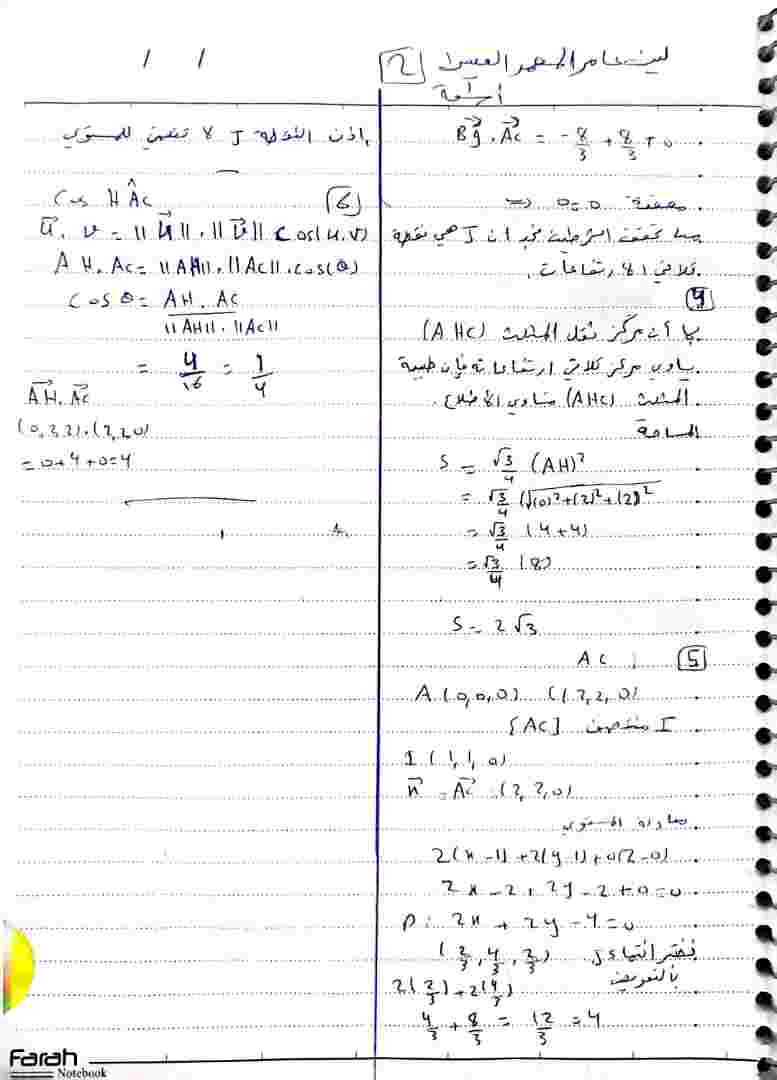 ليث عامر
أسامة
2
/ /
BJ . AC = -8/3 + 8/3 + 0
محققة 0 = 0
بما تحقق الشرطين نجد أن J هي نقطة
تلاقي الارتفاعات.
4
بما أن مركز ثقل المثلث (AHC)
يساوي مركز تلاقي ارتفاعاته فإن طبيعة
المثلث (AHC) متساوي الأضلاع.
المساحة
S = √3/4 (AH)²
= √3/4 (√(0)²+(2)²+(2)²)²
= √3/4 (4+4)
= √3/4 (8)
S = 2√3
5 AC
A (0,0,0) C (2,2,0)
I منتصف [AC]
I (1,1,0)
n = AC (2,2,0)
معادلة المستوي
2(x-1)+2(y-1)+0(z-0)
2x-2+2y-2+0=0
P: 2x+2y-4=0
نختبر انتماء J (2/3, 4/3, 2/3)
بالتعويض
2(2/3)+2(4/3)
4/3 + 8/3 = 12/3 = 4
إذن النقطة J لا تنتمي للمستوي
6 Cos HAC
u . v = ||u|| . ||v|| cos(u,v)
AH . AC = ||AH|| . ||AC|| . cos(θ)
Cos θ = AH . AC / ||AH|| . ||AC||
= 4/16 = 1/4
AH . AC
(0,2,2) . (2,2,0)
= 0+4+0=4
Farah
Notebook